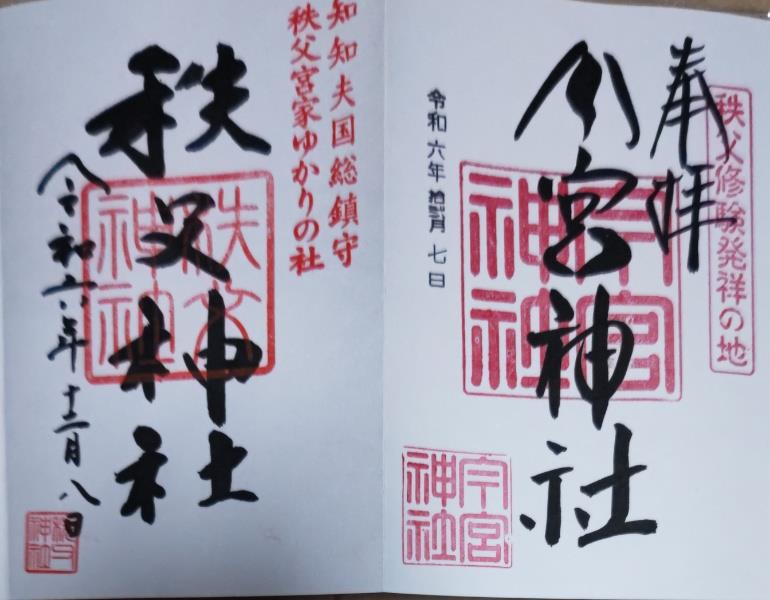 奉拝
秩父修験発祥の地
今宮神社
今宮
神社
令和六年拾弐月七日
今宮
神社
知知夫国総鎮守
秩父宮家ゆかりの社
秩父神社
秩父
神社
令和六年十二月八日
秩父
神社